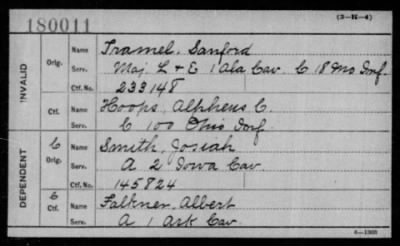 180011
(3-H-4)
INVALID
Orig.
Name Tramel, Sanford
Serv. Maj. L & E 1 Ala Cav. C 18 Mo Inf.
Ctf. No. 233148
Ctf.
Name Hoops, Alpheus C.
Serv. C 100 Ohio Inf
DEPENDENT
C
Orig.
Name Smith, Josiah
Serv. A 2 Iowa Cav.
Ctf. No. 145824
C
Ctf.
Name Falkner, Albert
Serv. A 1 Ark Cav.